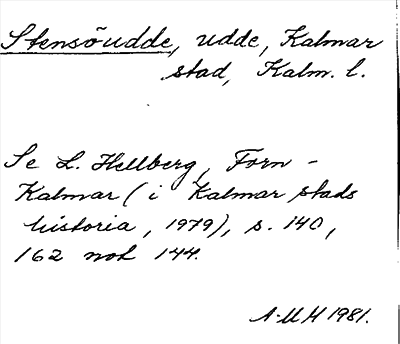 Stensöudde, udde, Kalmar
stad, Kalm. l.
Se L. Hellberg, Forn-
Kalmar (i Kalmar stads
historia, 1979), s. 140,
162 not 144.
A-MH 1981.